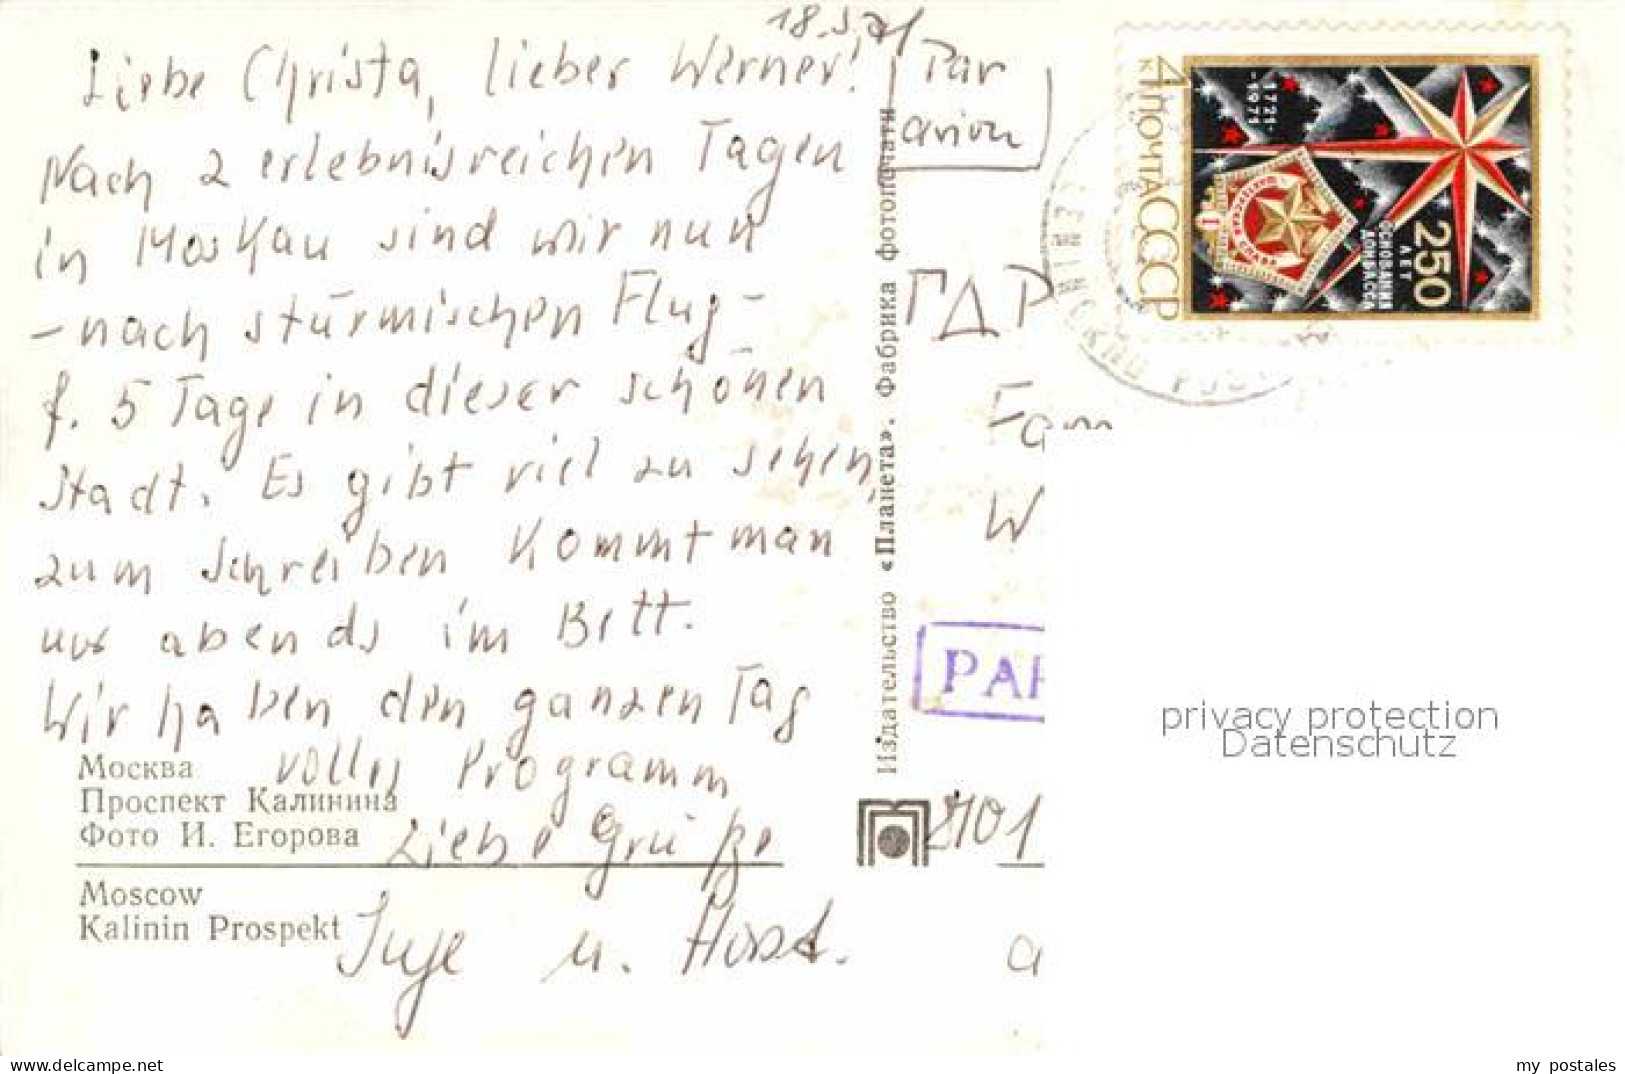 18.5.71
Liebe Christa, lieber Werner!
Nach 2 erlebnisreichen Tagen
in Moskau sind wir nun
- nach stürmischen Flug -
f. 5 Tage in dieser schönen
Stadt. Es gibt viel zu sehen,
zum Schreiben kommt man
nur abends im Bett.
Wir haben den ganzen Tag
volles Programm
Liebe Grüße
Inge u. Horst.
Москва
Проспект Калинина
Фото И. Егорова
Moscow
Kalinin Prospekt
Издательство «Планета». Фабрика фотопечати
Par
avion
4 к ПОЧТА СССР
1721-
-1971
250
ЛЕТ
ОСНОВАНИЯ
ДОНБАССА
ГДР
Fam
W
PAR
privacy protection
Datenschutz
my postales